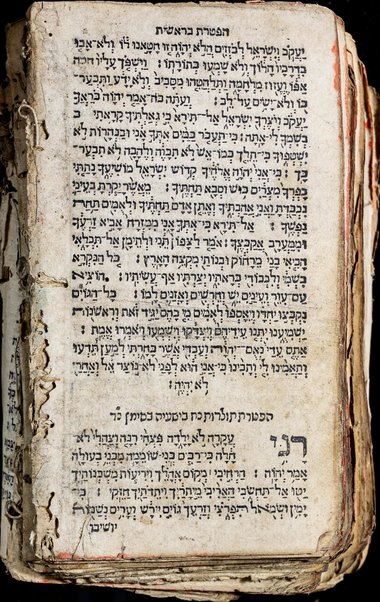 הפטרת בראשית
יעקב וישראל לבוזזים הלא יהוה זו חטאנו לו ולא אבו
בדרכיו הלוך ולא שמעו בתורתו׃ וישפך עליו חמה
אפו ועזוז מלחמה ותלהטהו מסביב ולא ידע ותבער
בו ולא ישים על לב׃ ועתה כה אמר יהוה בראך
יעקב ויצרך ישראל אל תירא כי גאלתיך קראתי
בשמך לי אתה׃ כי תעבר במים אתך אני ובנהרות לא
ישטפוך כי תלך במו אש לא תכוה ולהבה לא תבער
בך׃ כי אני יהוה אלהיך קדוש ישראל מושיעך נתתי
כפרך מצרים כוש וסבא תחתיך׃ מאשר יקרת בעיני
נכבדת ואני אהבתיך ואתן אדם תחתיך ולאמים תחת
נפשך׃ אל תירא כי אתך אני ממזרח אביא זרעך
וממערב אקבצך׃ אמר לצפון תני ולתימן אל תכלאי
הביאי בני מרחוק ובנותי מקצה הארץ׃ כל הנקרא
בשמי ולכבודי בראתיו יצרתיו אף עשיתיו׃ הוציא
עם עור ועינים יש וחרשים ואזנים למו׃ כל הגוים
נקבצו יחדו ויאספו לאמים מי בהם יגיד זאת וראשנות
ישמיענו יתנו עידיהם ויצדקו וישמעו ויאמרו אמת׃
אתם עדי נאם יהוה ועבדי אשר בחרתי למען תדעו
ותאמינו לי ותבינו כי אני הוא לפני לא נוצר אל ואחרי
לא יהיה׃
הפטרת תולדות נח בישעיה בסימן נד
רני עקרה לא ילדה פצחי רנה וצהלי לא
חלה כי רבים בני שוממה מבני בעולה
אמר יהוה׃ הרחיבי מקום אהלך ויריעות משכנותיך
יטו אל תחשכי האריכי מיתריך ויתדתיך חזקי׃ כי
ימין ושמאל תפרצי וזרעך גוים יירש וערים נשמות
יושיבו